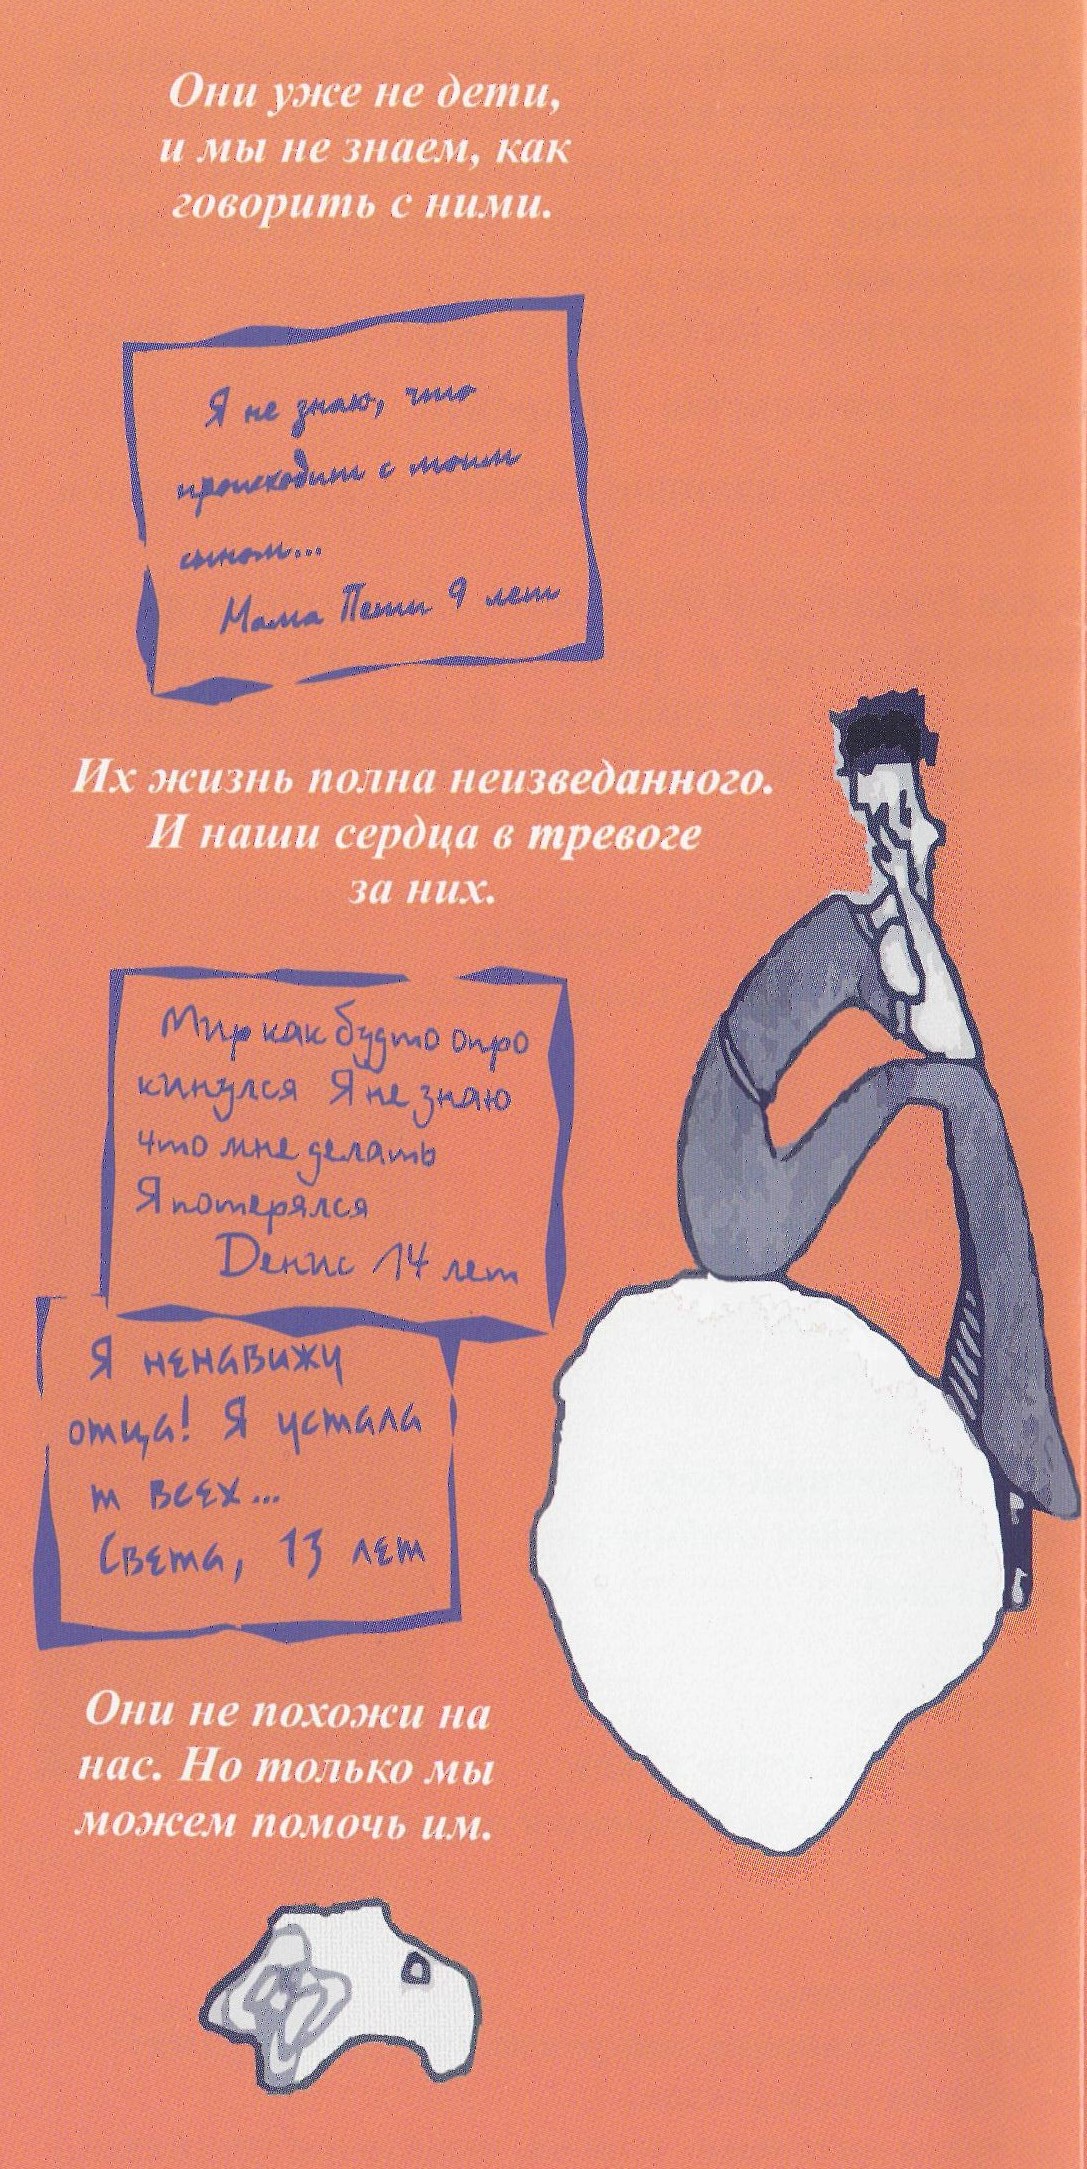 Они уже не дети,
и мы не знаем, как
говорить с ними.
Я не знаю, что
происходит с моим
сыном...
Мама Пети 9 лет
Их жизнь полна неизведанного.
И наши сердца в тревоге
за них.
Мир как будто опро
кинулся Я не знаю
что мне делать
Я потерялся
Денис 14 лет
Я ненавижу
отца! Я устала
т всех...
Света, 13 лет
Они не похожи на
нас. Но только мы
можем помочь им.